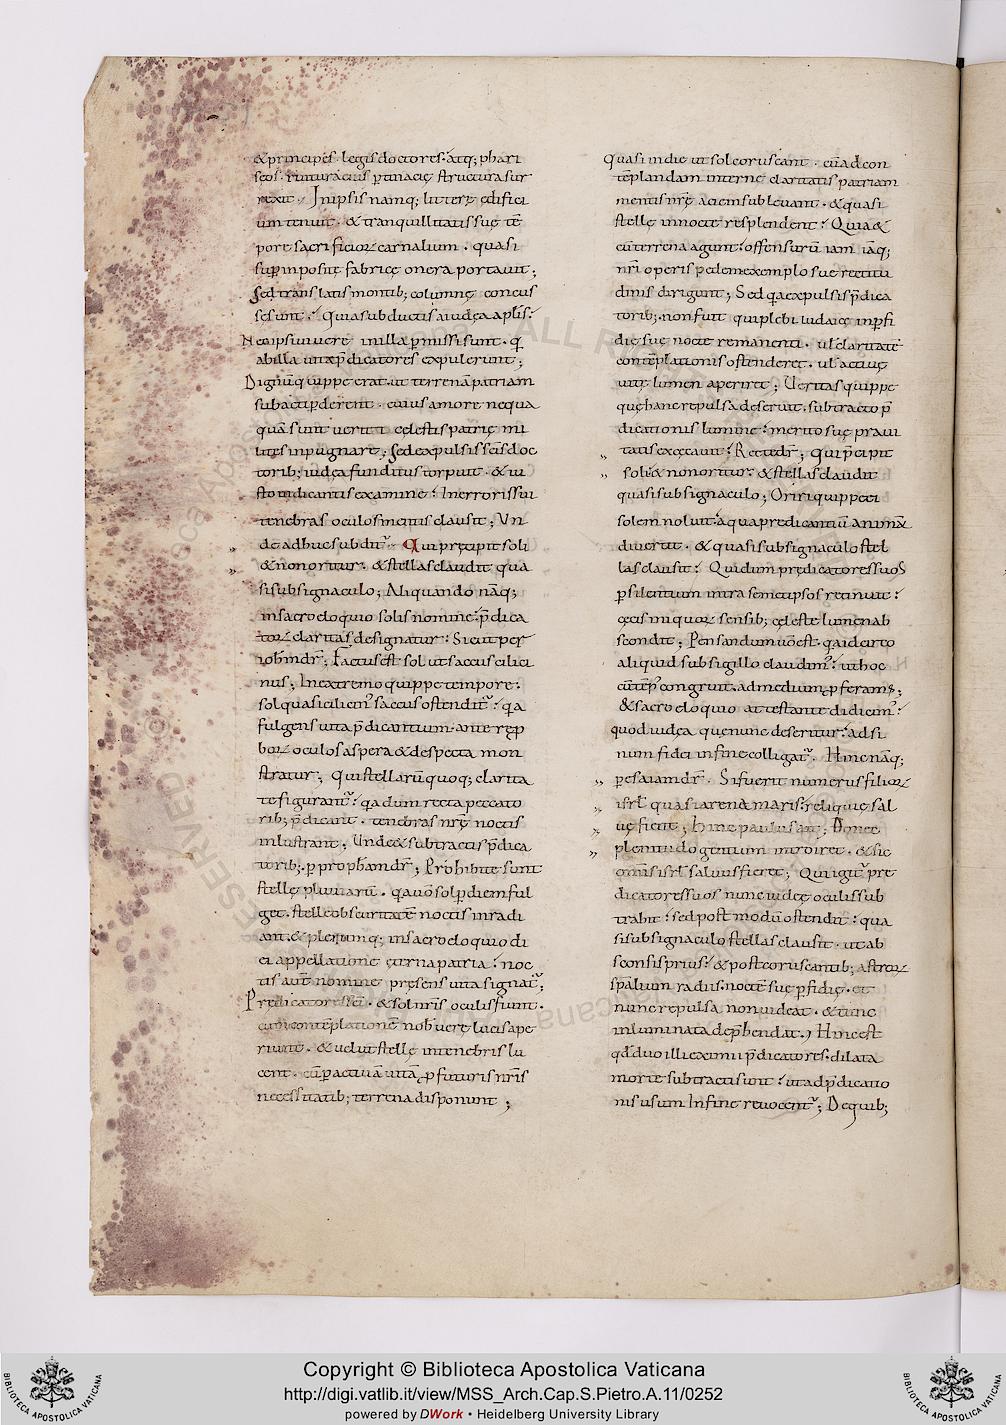 & principes. legis doctores. atq; phari
seos. ruituraeius ꝑtinacię structura sur
rexit. In ipsis namq; litterę edifici
um tenuit. & tranquillitatis suę tē
pore sacrificioꝝ carnalium. quasi
suꝑinpositę fabricę onera portauit;
Sed translatis montib; columnę concus
sę sunt. Quia subductis a iudęa apl̄is.
Nec ipsi uiuere in illa ꝑmissi sunt. q̄
ab illa uitae p̄dicatores expulerunt;
Dignū quippe erat. ut terrenā patriam
subacti ꝑderent. cuius amore nequa
quā sunt ueriti cęlestis patrię mi
lites inpugnare; Sed expulsis sc̄is doc
torib; iudęa funditus torpuit. & iu
sto iudicantis examine. In erroris sui
tenebras oculos mentis clausit; Un
de adhuc subdit᷑. Qui pręcipit soli
& non oritur. & stellas claudit qua
si sub signaculo; Aliquando nāq;
in sacro eloquio solis nomine. p̄dica
toꝝ claritas designatur. Sicut per
iohm̄ dr̄; Factus est sol ut saccus cilici
nus; In extremo quippe tempore.
sol quasi cilicin᷒ saccus ostendit᷑. q̄a
fulgens uita p̄dicantium. ante rep
boꝝ oculos aspera & despecta mon
stratur; Qui stellarū quoq; clarita
te figurant᷑. q̄a dum recta peccato
rib; p̄dicant. tenebras nr̄ę noctis
inlustrant; Unde & subtractis p̄dica
torib;. ꝑ prophām dr̄; Prohibitę sunt
stellę pluuiarū. q̄a uō sol ꝑ diem ful
get. stellę obscuritatē noctis inradi
ant. & plerumq; in sacro eloquio di
ei appellatione ęterna patria. noc
tis aut̄ nomine pręsens uita signat᷑;
Prędicatores sc̄i. & sol nr̄is oculis fiunt.
cum contēplationē nob̄ uerę lucis ape
riunt. & uelut stellę in tenebris lu
cent. cū ꝑ actiuā uitā. ꝓfuturis nr̄is
necessitatib; terrena disponunt;
Quasi in die ut sol coruscant. cū ad con
tēplandam internę claritatis patriam
mentis nr̄ę aciem subleuant. & quasi
stellę in nocte resplendent. Quia &
cū terrena agunt. offensurū iam iāq;
nr̄i operis pedem exemplo suę rectitu
dinis dirigunt; Sed q̄a expulsis p̄dica
torib;. non fuit qui plebi iudaicę in ꝑfi
dię suę nocte remanenti. ut̄ claritatē
contēplationis ostenderet. ut̄ actiuę
uitę lumen aperiret; Ueritas quippe
quę hanc repulsa deseruit. subtracto p̄
dicationis lumine. merito suę praui
tatis excęcauit. Recte dr̄; Qui p̄cipit
soli & non oritur. & stellas claudit
quasi sub signaculo; Oriri quippe ei
solem noluit. a qua predicantiū animū
diuertit. & quasi sub signaculo stel
las clausit. Qui dum predicatores suos
ꝑ silentium intra semetipsos retinuit.
cęcis iniquoꝝ sensib; cęleste lumen ab
scondit; Pensandum uō est. q̄a idcirco
aliquid sub sigillo claudim᷒. ut hoc
cū tēp᷒ congruit. ad medium ꝓferam᷒;
& sacro eloquio attestante didicim᷒.
quod iudęa quę nunc deseritur. ad si
num fidei in fine colligat᷑. Hinc nāq;
ꝑ esaiam dr̄. Si fuerit numerus filioꝝ
isrl̄ quasi arena maris. reliquię sal
uę fient; Hinc paulus ait; Donec
plenitudo gentium introiret. & sic
omīs isrl̄ saluus fieret; Qui igit᷑ pre
dicatores suos nunc iudęę oculis sub
trahit. sed post modū ostendit. qua
si sub signaculo stellas clausit. ut ab
sconsis prius. & post coruscantib; astroꝝ
sp̄alium radiis. noctē suę ꝑfidię. et
nunc repulsa non uideat. & tunc
inluminata depr̄hendat. Hinc est
qđ duo illi eximii p̄dicatores. dilata
morte subtracti sunt. ut ad p̄dicatio
nis usum In fine reuocent᷑; De quib;
Copyright © Biblioteca Apostolica Vaticana
http://digi.vatlib.it/view/MSS_Arch.Cap.S.Pietro.A.11/0252
powered by DWork • Heidelberg University Library
BIBLIOTECA APOSTOLICA VATICANA
BIBLIOTECA APOSTOLICA VATICANA